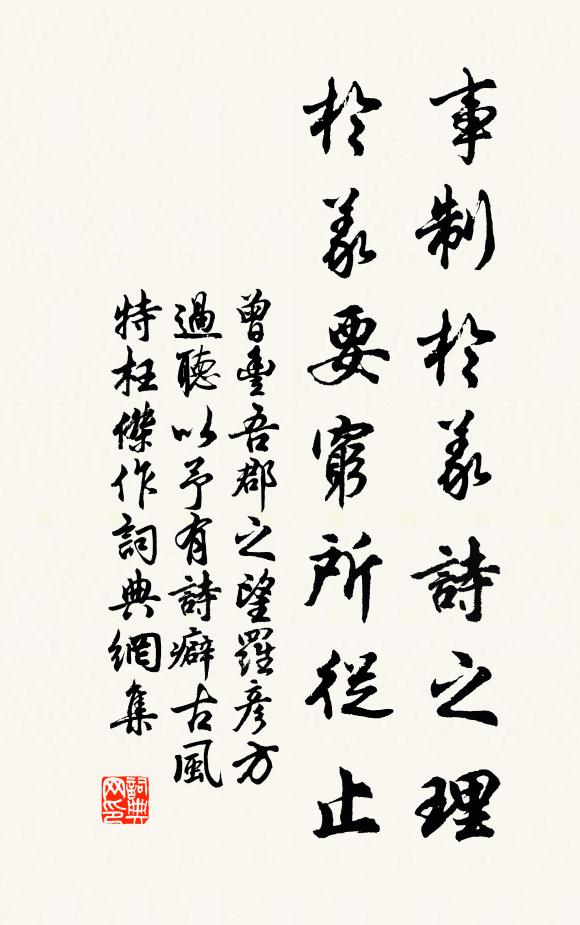 事制於義詩之理
於義要窮所從止
曾豐吾郡之望羅彦方
過聽以予有詩癖古風
特枉傑作詞典網集
詞典网印